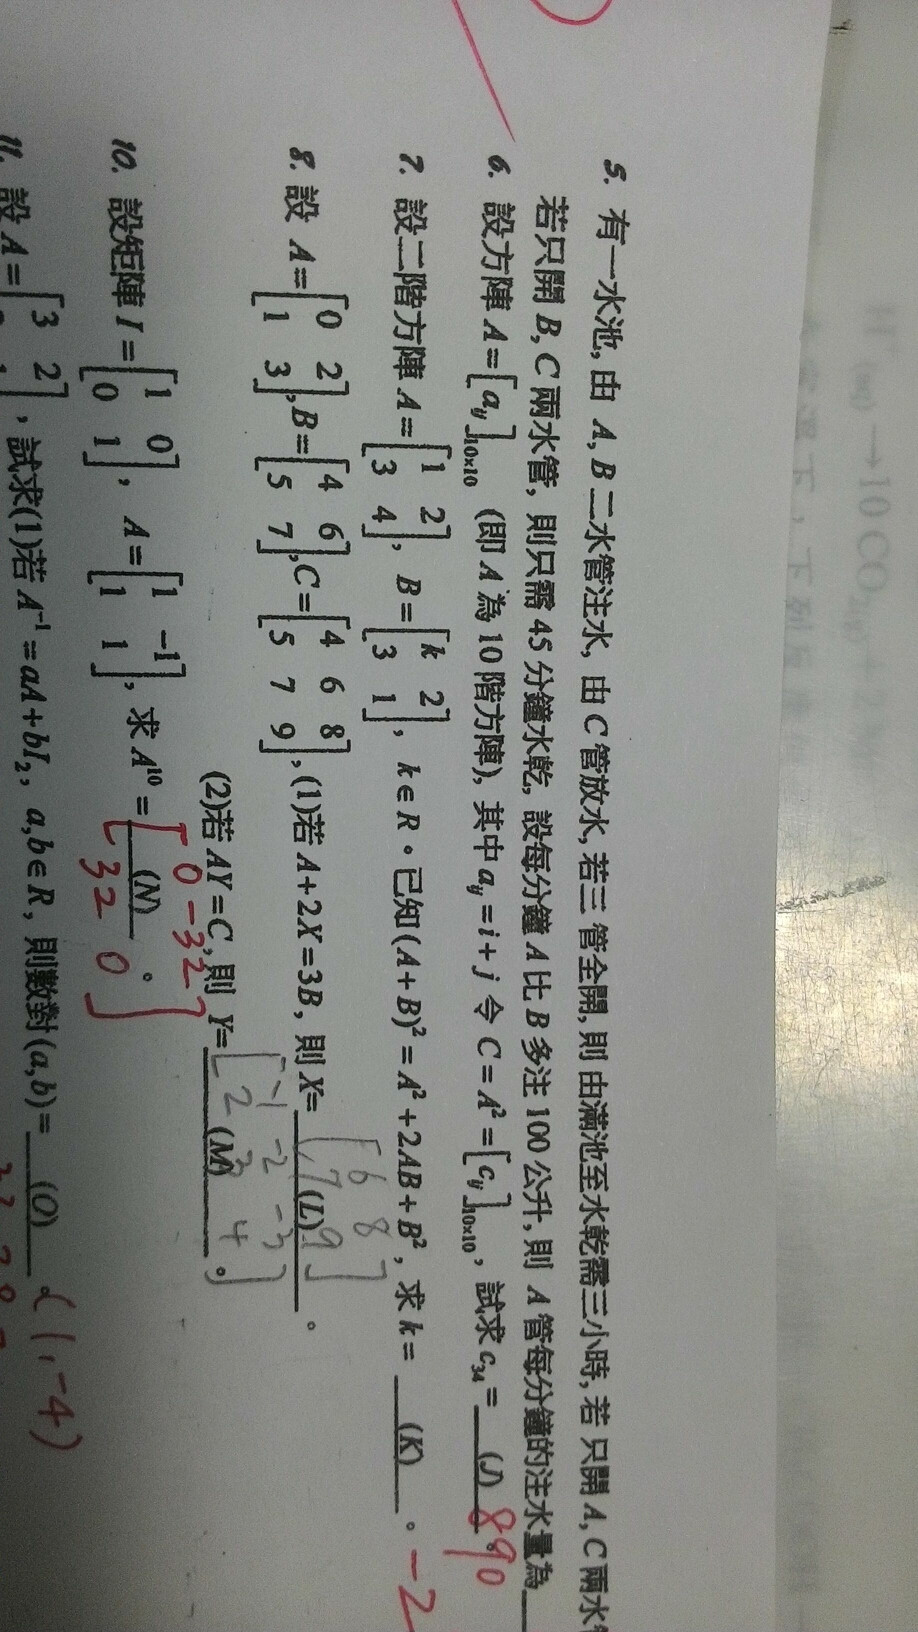 5. 有一水池, 由 A, B 二水管注水, 由 C 管放水, 若三管全開, 則由滿池至水乾需三小時, 若只開 A, C 兩水管
若只開 B, C 兩水管, 則只需 45 分鐘水乾, 設每分鐘 A 比 B 多注 100 公升, 則 A 管每分鐘的注水量為
6. 設方陣 A=[a_ij]_10×10 (即 A 為 10 階方陣), 其中 a_ij=i+j 令 C=A²=[c_ij]_10×10, 試求 c_34= (J) 890
7. 設二階方陣 A=[1 2; 3 4], B=[k 2; 3 1], k∈R。已知 (A+B)²=A²+2AB+B², 求 k= (K) 。-2
8. 設 A=[0 2; 1 3], B=[4 6; 5 7], C=[4 6 8; 5 7 9], (1)若 A+2X=3B, 則 X= (L) 。 [6 8; 7 9]
(2)若 AY=C, 則 Y= (M) 。 [-1 -2 -3; 2 3 4]
10. 設矩陣 I=[1 0; 0 1], A=[1 -1; 1 1], 求 A¹⁰= (N) 。 [0 -32; 32 0]
11. 設 A=[3 2 , 試求(1)若 A⁻¹=aA+bI₂, a,b∈R, 則數對(a,b)= (O) 。(1,-4)
H⁺(aq) →10 CO₂(g) +